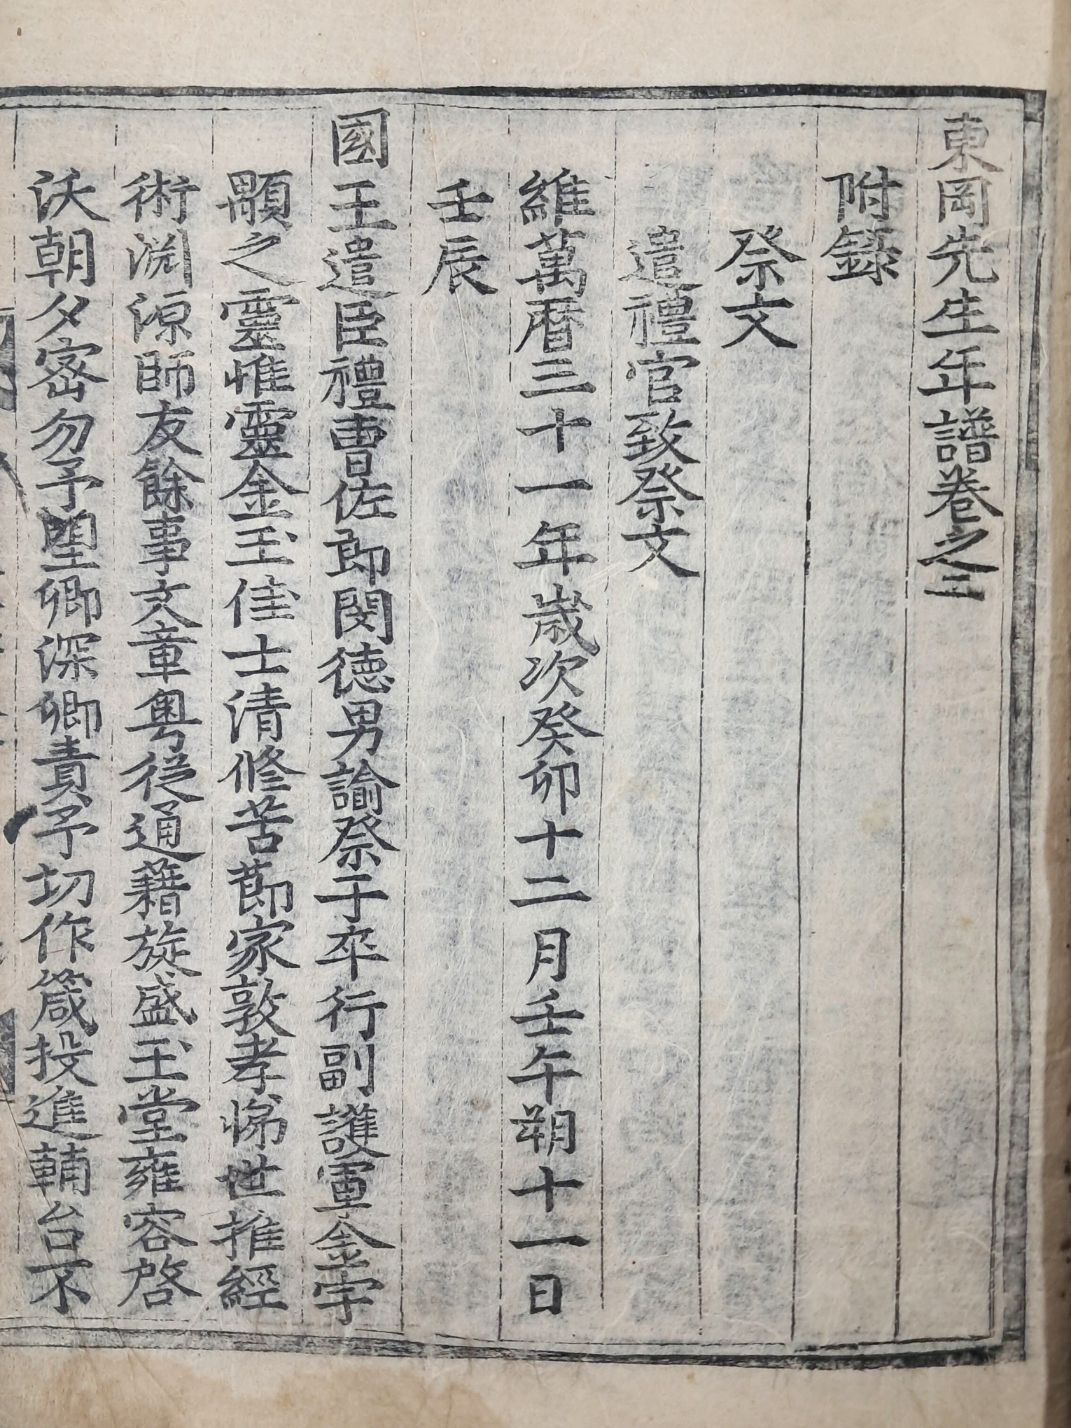 東岡先生年譜卷之二
附錄
祭文
遣禮官致祭文
維萬曆三十一年歲次癸卯十二月壬午朔十一日
壬辰
國王遣臣禮曹佐郎閔德男諭祭于卒行副護軍金宇
顒之靈惟靈金玉佳士清修苦節家敦孝悌世推經
術淵源師友餘事文章粤從通籍旋盛玉堂雍容啓
沃朝夕密勿予望卿深卿責予切作箴投進輔台不